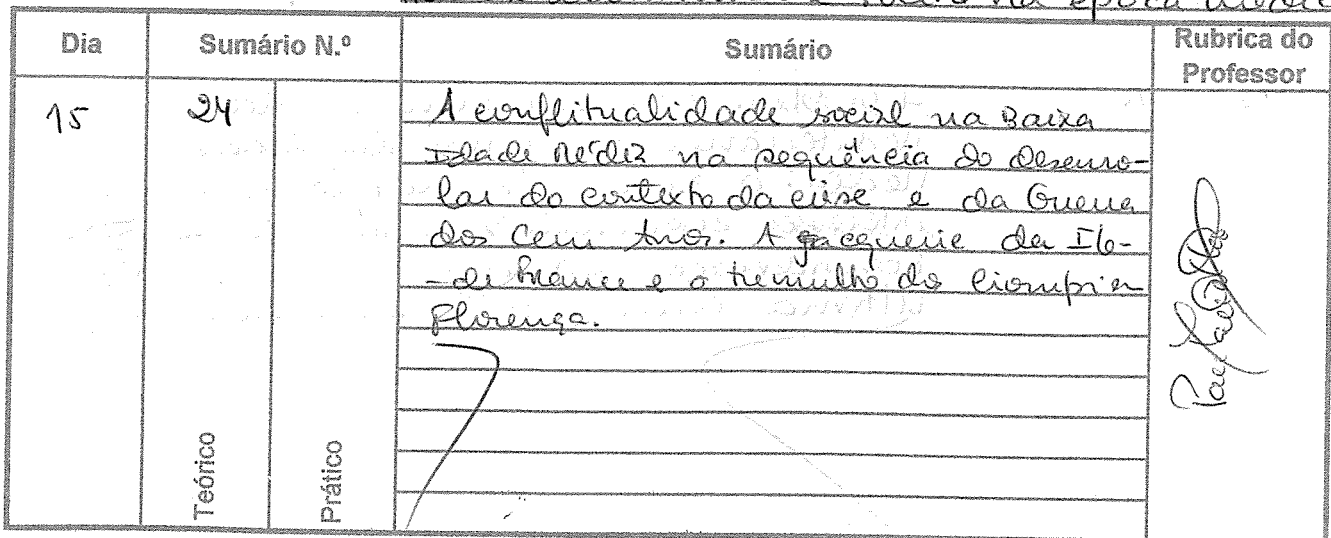 na época
Dia Sumário N.º Sumário Rubrica do Professor
15 24 A conflitualidade social na Baixa
Idade Média na sequência do desenro-
lar do contexto da crise e da Guerra
dos Cem Anos. A jacquerie da Ile-
-de France e o tumulto dos Ciompi em
Florença.
Teórico Prático